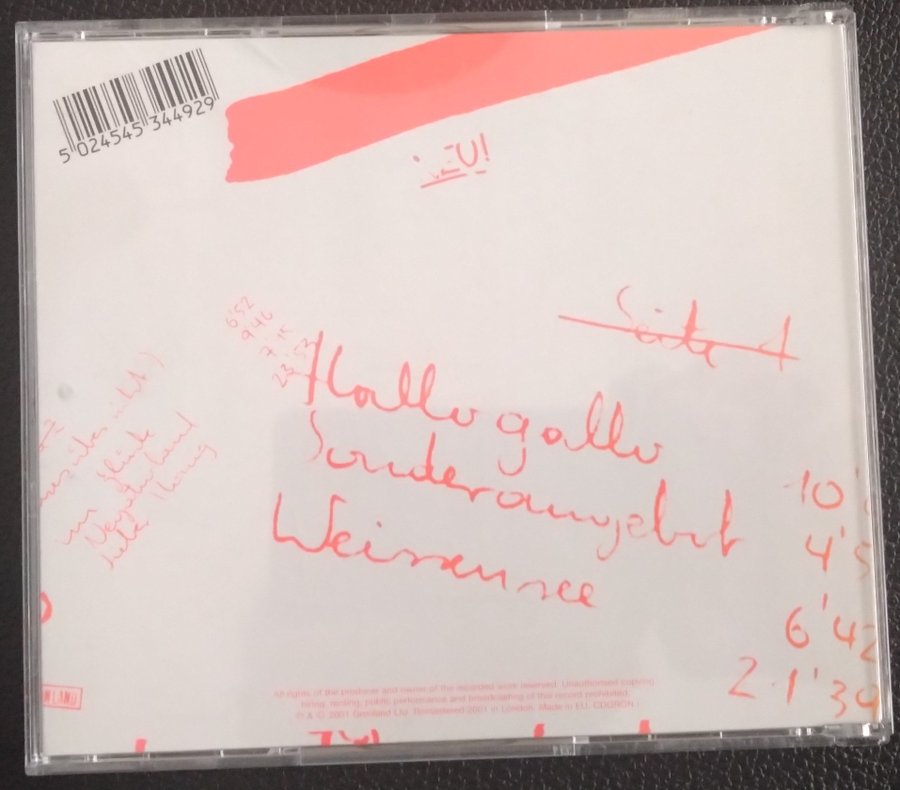 5 024545 344929
NEU!
Seite 1
6'52
9'46
7'15
23'53
Hallogallo
Sonderangebot
Weissensee
10'
4'5
6'42
2·1'39
im
hebt
NLAND
All rights of the producer and owner of the recorded work reserved. Unauthorised copying,
hiring, renting, public performance and broadcasting of this record prohibited.
℗ & © 2001 Grönland Ltd. Remastered 2001 in London. Made in EU. CDGRON I